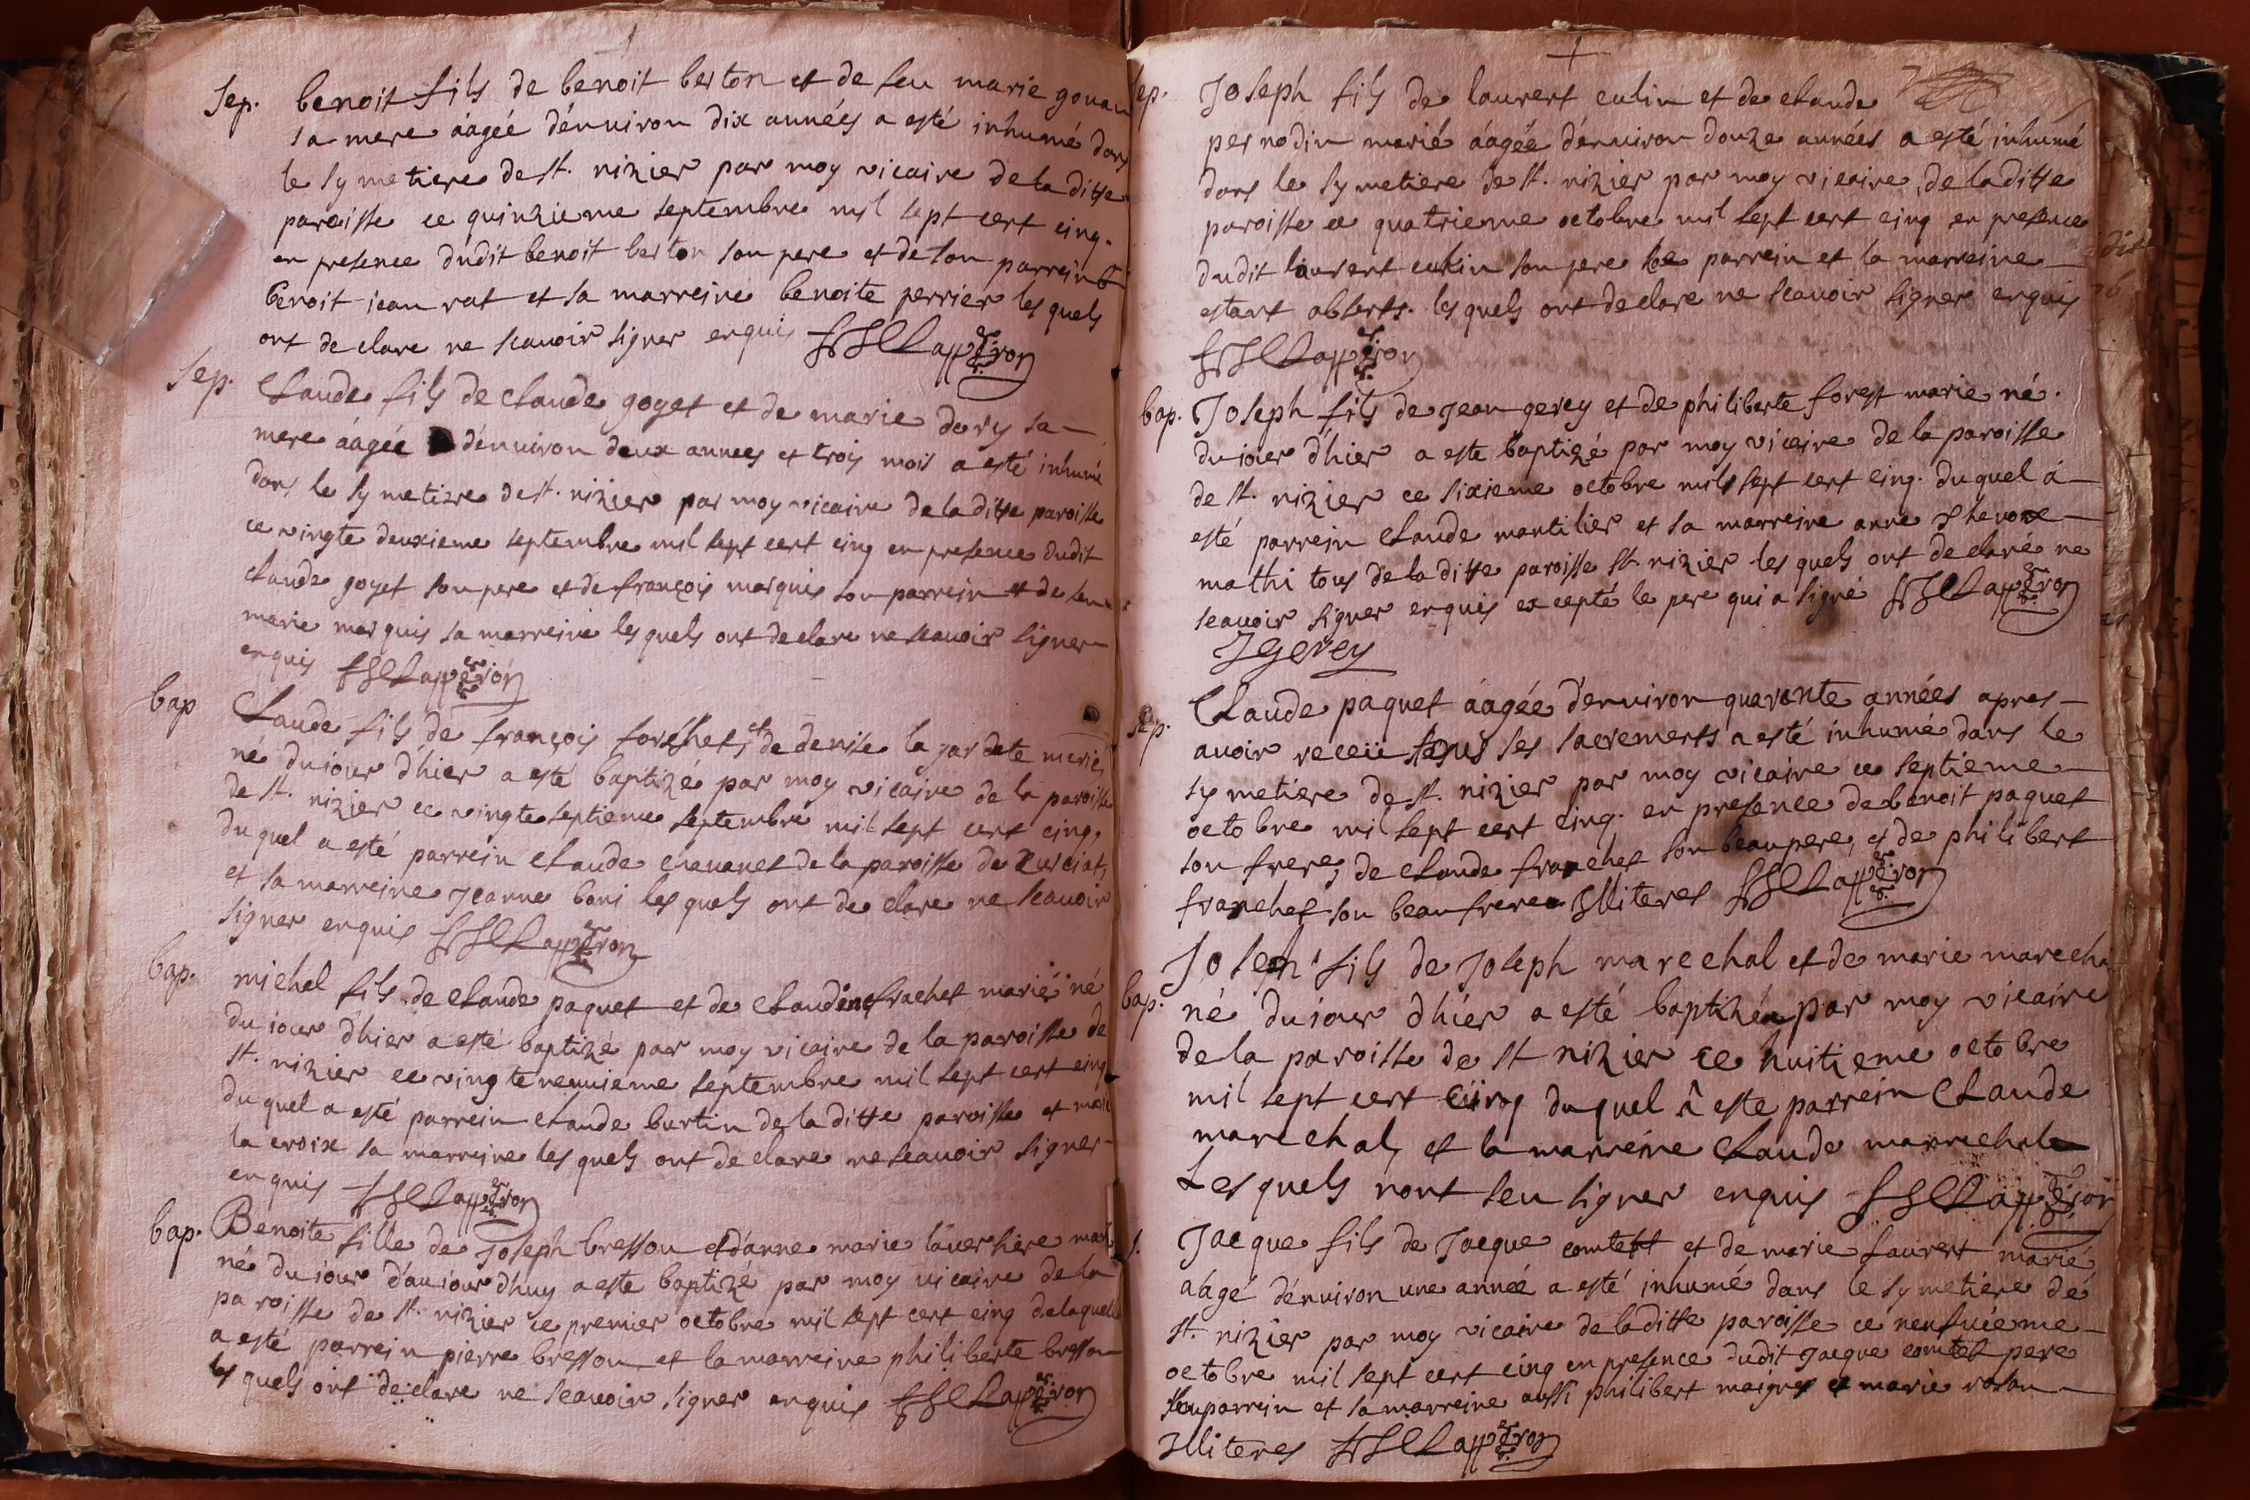 Sep. benoit fils de benoit berton et de feu marie gouan
sa mere áagée dénuiron dix années a esté inhumé dans
le symetiere de st. nizier par moy vicaire de la ditte
paroisse ce quinzieme septembre mil sept cent cinq.
en presence dudit benoit berton son pere et de son parrein
benoit jean rat et sa marreine benoite perrier les quels
ont declare ne scauoir signer enquis
Sep. Claude fils de claude goyet et de marie dory sa
mere áagée dénuiron deux annees et trois mois a esté inhumé
dans le symetiere de st. nizier par moy vicaire de la ditte paroisse
ce vingte deuxieme septembre mil sept cent cinq en presence dudit
claude goyet son pere et de françois marquis son parrein et de
marie marquis sa marreine les quels ont declare ne scauoir signer
enquis
bap Claude fils de françois forchet, et de denise la jardete marié,
né du jour d'hier a esté baptizé par moy vicaire de la paroisse
de st. nizier ce vingte septieme septembre mil sept cent cinq,
du quel a esté parrein claude chanauet de la paroisse de Curciat,
et sa marreine jeanne boni les quels ont declare ne scauoir
signer enquis
bap. michel fils de claude paquet et de claudine frachet marié né
du jour d'hier a esté baptizé par moy vicaire de la paroisse de
st. nizier ce vingte neuuieme septembre mil sept cent cinq
du quel a esté parrein claude burtin de la ditte paroisse et marie
la croix sa marreine les quels ont declare ne scauoir signer
enquis
bap. Benoite fille de Joseph bressou et d'anne marie lauersiere marié
né du jour d'aujour d'huy a este baptizé par moy vicaire de la
paroisse de st. nizier ce premier octobre mil sept cent cinq de laquelle
a esté parrein pierre bressou et la marreine philiberte bressou
les quels ont declare ne scauoir signer enquis
Sep. Joseph fils de laurent culin et de claude
pernodin marié áagée dénuiron douze années a esté inhumé
dans le symetiere de st. nizier par moy vicaire de la ditte
paroisse ce quatrieme octobre mil sept cent cinq en presence
dudit laurent culin son pere le parrein et la marreine
estant absents. les quels ont declare ne scauoir signer enquis
bap. Joseph fils de Jean gerey et de philiberte forest marié né.
du jour d'hier a este baptizé par moy vicaire de la paroisse
de st. nizier ce sixieme octobre mil sept cent cinq. du quel á
esté parrein claude mantilier et sa marreine anne
mathi tous de la ditte paroisse st nizier les quels ont declaré ne
scauoir signer enquis excepté le pere qui a signé
J gerey
Sep. Claude paquet áagée d'enuiron quarante années apres
auoir receu tous ses sacrements a esté inhumé dans le
symetiere de st. nizier par moy vicaire ce septieme
octobre mil sept cent cinq. en presence de benoit paquet
son frere, de claude franchet son beaupere, et de philibert
franchet son beaufrere Illiteres
bap. Joseph fils de Joseph marechal et de marie marecha
né du jour d'hier a esté baptizé par moy vicaire
de la paroisse de st nizier ce huitieme octobre
mil sept cent cinq du quel â este parrein Claude
marechal, et la marreine Claude marrechale
Les quels nont seu signer enquis
s. Jacque fils de Jacque comtet et de marie faurent marié
áagé dénuiron une année a esté inhumé dans le symetiere dé
st. nizier par moy vicaire de la ditte paroisse ce neufuieme
octobre mil sept cent cinq en presence dudit jacque comtet pere
son parrein et sa marreine aussi philibert maigret et marie roson
Illiteres